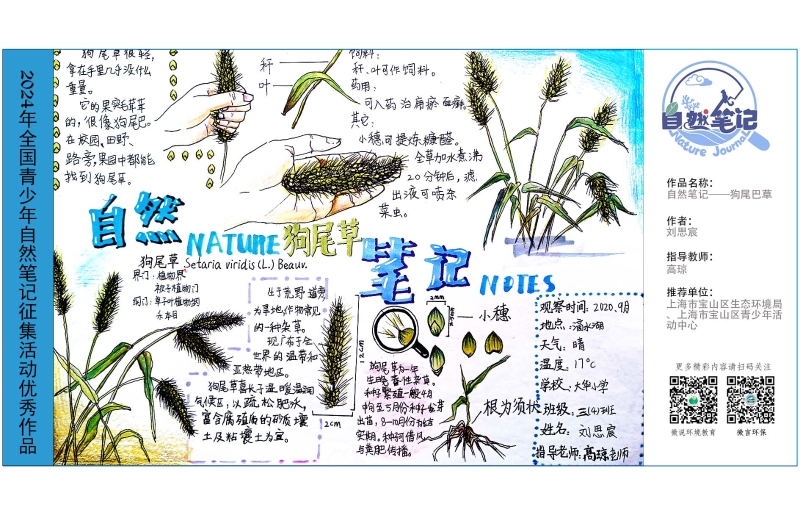 2024年全国青少年自然笔记征集活动优秀作品
狗尾草很轻,
拿在手里几乎没什么
重量。
它的果实毛茸茸
的,很像狗尾巴。
在校园、田野、
路旁,果园中都能
找到狗尾草。
秆
叶
饲料:
秆、叶可作饲料。
药用:
可入药治痈瘀、面癣。
其它:
小穗可提炼糠醛。
全草加水煮沸
20分钟后,滤
出液可喷杀
菜虫。
自然
NATURE 狗尾草
笔记
NOTES
狗尾草 Setaria viridis (L.) Beauv.
界门:植物界
被子植物门
纲门:单子叶植物纲
禾本目
生于荒野、道旁
为旱地作物常见
的一种杂草。
现广布于全
世界的温带和
亚热带地区。
狗尾草喜长于温暖湿润
气候区,以疏松肥沃,
富含腐殖质的砂质壤
土及粘壤土为宜。
12cm
2cm
2mm
小穗
狗尾草为一年
生晚春性杂草。
以种子繁殖,一般4月
中旬至5月份种子发芽
出苗,8-10月份为结实
实期。种子可借风
与粪肥传播。
根为须状
观察时间:2020.9月
地点:滴水湖
天气:晴
温度:17℃
学校:大华小学
班级:三(4)班
姓名:刘思宸
指导老师:高琼老师
自然笔记
Nature Journal
作品名称:
自然笔记——狗尾巴草
作者:
刘思宸
指导教师:
高琼
推荐单位:
上海市宝山区生态环境局
、上海市宝山区青少年活
动中心
更多精彩内容请扫码关注
微说环境教育
微言环保